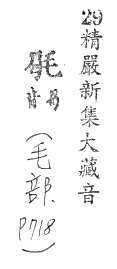 29精嚴新集大藏音
(毛部.
P718)